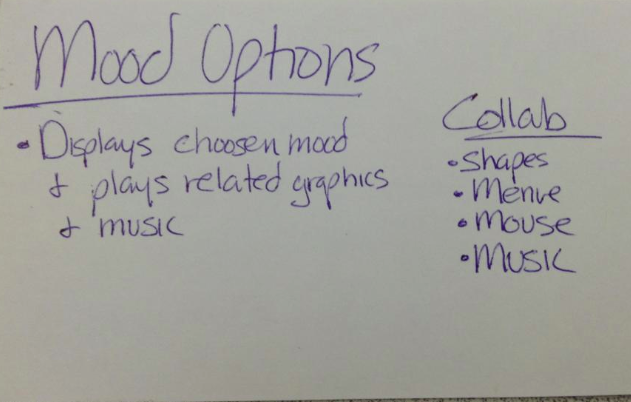 Mood Options
• Displays choosen mood
& plays related graphics
& music
Collab
• Shapes
• Menue
• Mouse
• Music